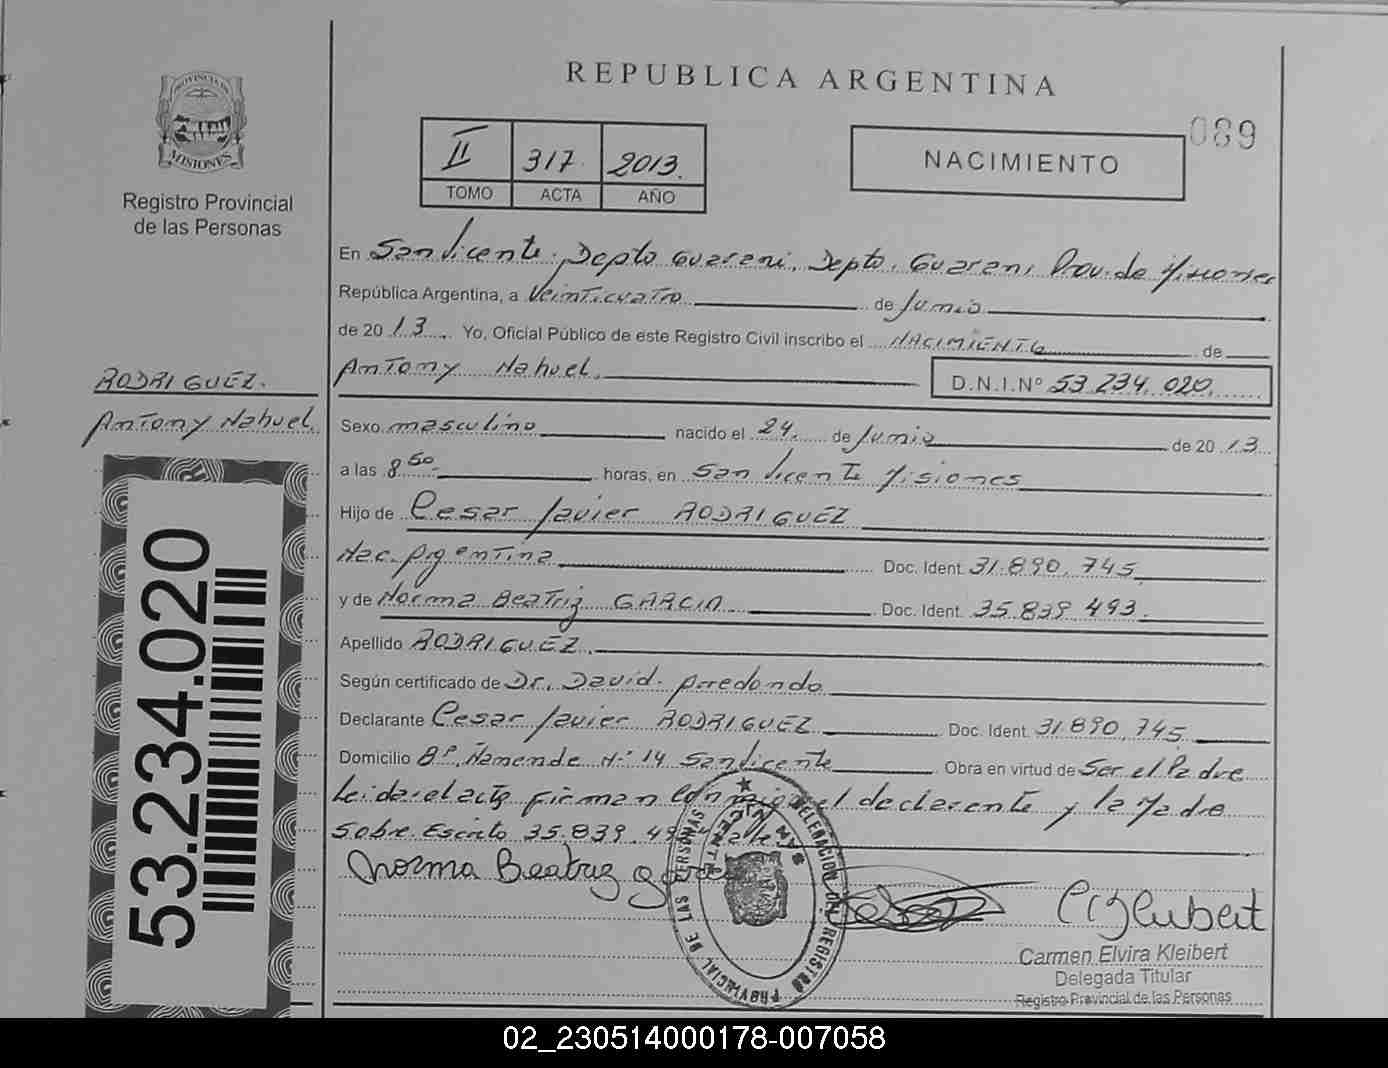 PROVINCIA DE
MISIONES
Registro Provincial
de las Personas
RODRIGUEZ.
Antony Nahuel.
53.234.020
REPUBLICA ARGENTINA
089
II 317 2013.
TOMO ACTA AÑO
NACIMIENTO
En San Vicente. Depto Guarani. Depto. Guarani Prov. de Misiones
República Argentina, a Veinticuatro de Junio
de 2013. Yo, Oficial Público de este Registro Civil inscribo el NACIMIENTO de
Antony Nahuel. D.N.I.Nº 53.234.020.
Sexo masculino nacido el 24. de Junio de 2013.
a las 8 50 horas, en San Vicente Misiones
Hijo de Cesar Javier RODRIGUEZ
Nac. Argentina Doc. Ident. 31.890.745
y de Norma Beatriz GARCIA Doc. Ident. 35.839.493.
Apellido RODRIGUEZ.
Según certificado de Dr. David Arredondo
Declarante Cesar Javier RODRIGUEZ Doc. Ident. 31.890.745
Domicilio Bº. Ñamende Nº 14 San Vicente Obra en virtud de Ser el Padre
Leida el acta firman conmigo el declarante y la Madre
Sobre Escrito 35.839.49
Norma Beatriz
DELEGACION DEL REGISTRO PROVINCIAL DE LAS PERSONAS
SAN VICENTE
Carmen Elvira Kleibert
Delegada Titular
Registro Provincial de las Personas
02_230514000178-007058